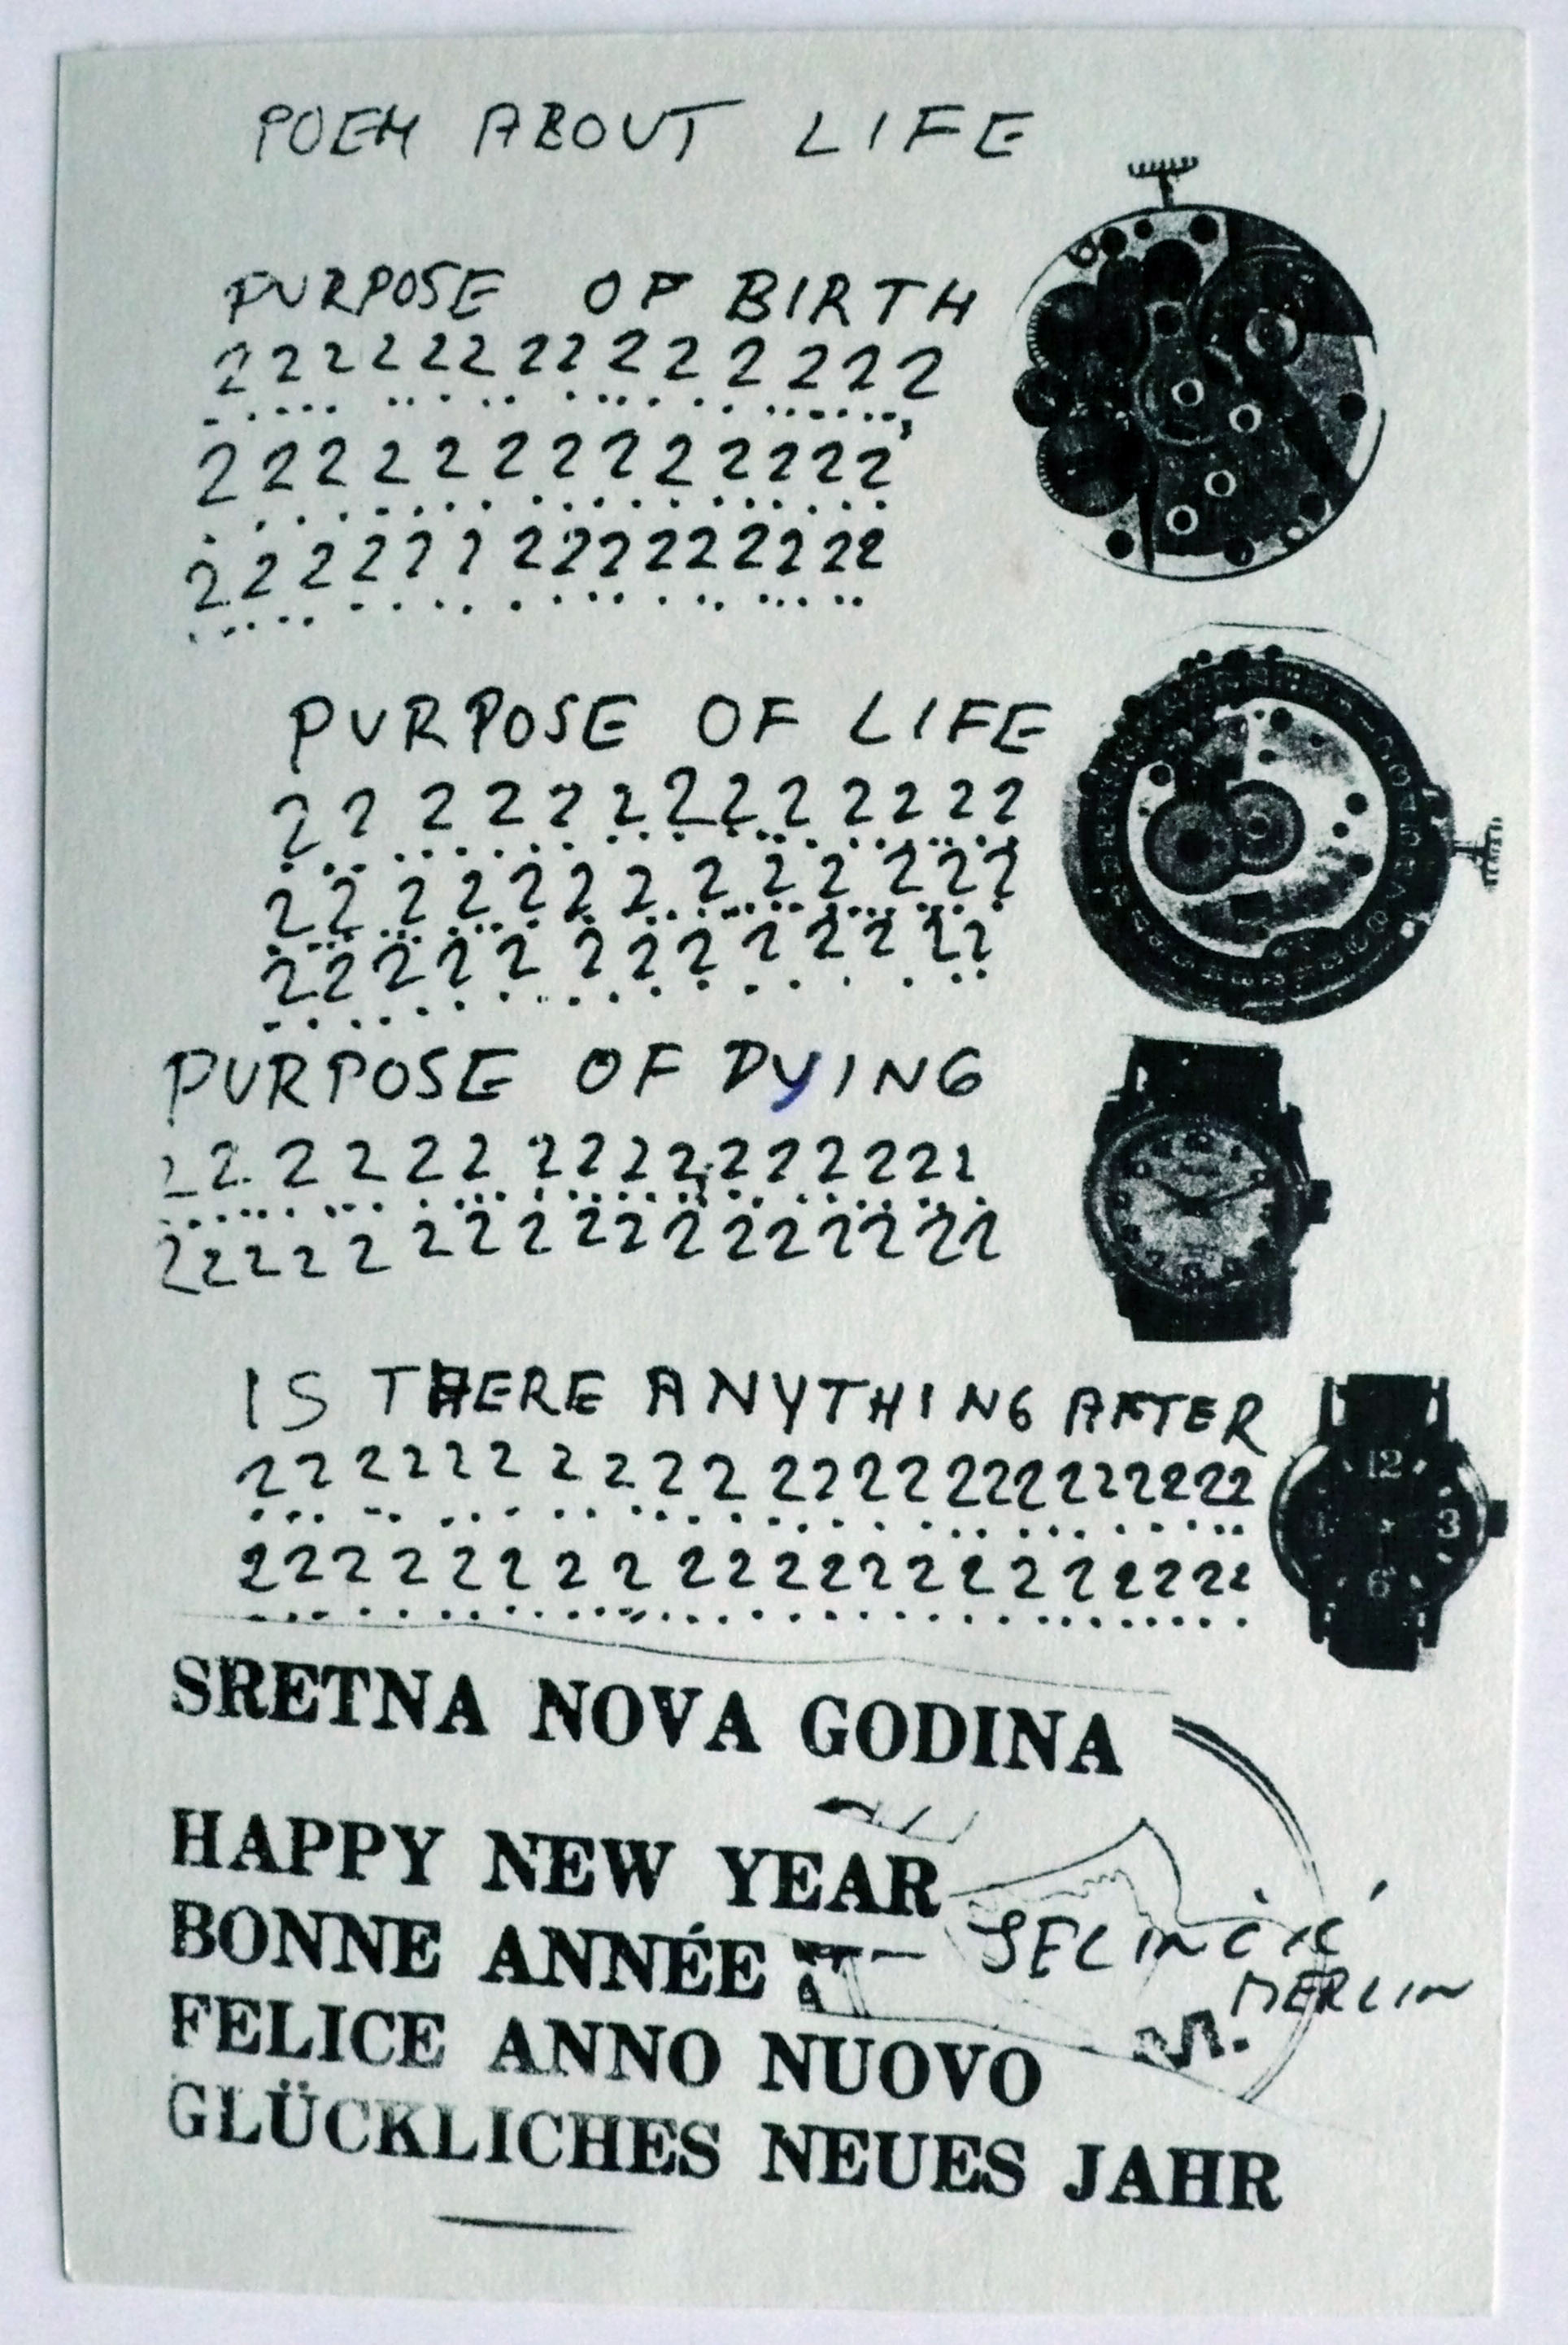 POEM ABOUT LIFE
PURPOSE OF BIRTH
? ? ? ? ? ? ? ? ? ? ? ? ? ?
? ? ? ? ? ? ? ? ? ? ? ? ?
? ? ? ? ? ? ? ? ? ? ? ? ? ? ?
PURPOSE OF LIFE
? ? ? ? ? ? ? ? ? ? ? ? ?
? ? ? ? ? ? ? ? ? ? ? ? ?
? ? ? ? ? ? ? ? ? ? ? ? ?
PURPOSE OF DYING
? ? ? ? ? ? ? ? ? ? ? ? ? ? ? ?
? ? ? ? ? ? ? ? ? ? ? ? ? ? ? ? ?
IS THERE ANYTHING AFTER
? ? ? ? ? ? ? ? ? ? ? ? ? ? ? ? ? ? ? ? ? ? ?
? ? ? ? ? ? ? ? ? ? ? ? ? ? ? ? ? ? ? ? ?
12
3
6
SRETNA NOVA GODINA
HAPPY NEW YEAR
BONNE ANNÉE
FELICE ANNO NUOVO
GLÜCKLICHES NEUES JAHR